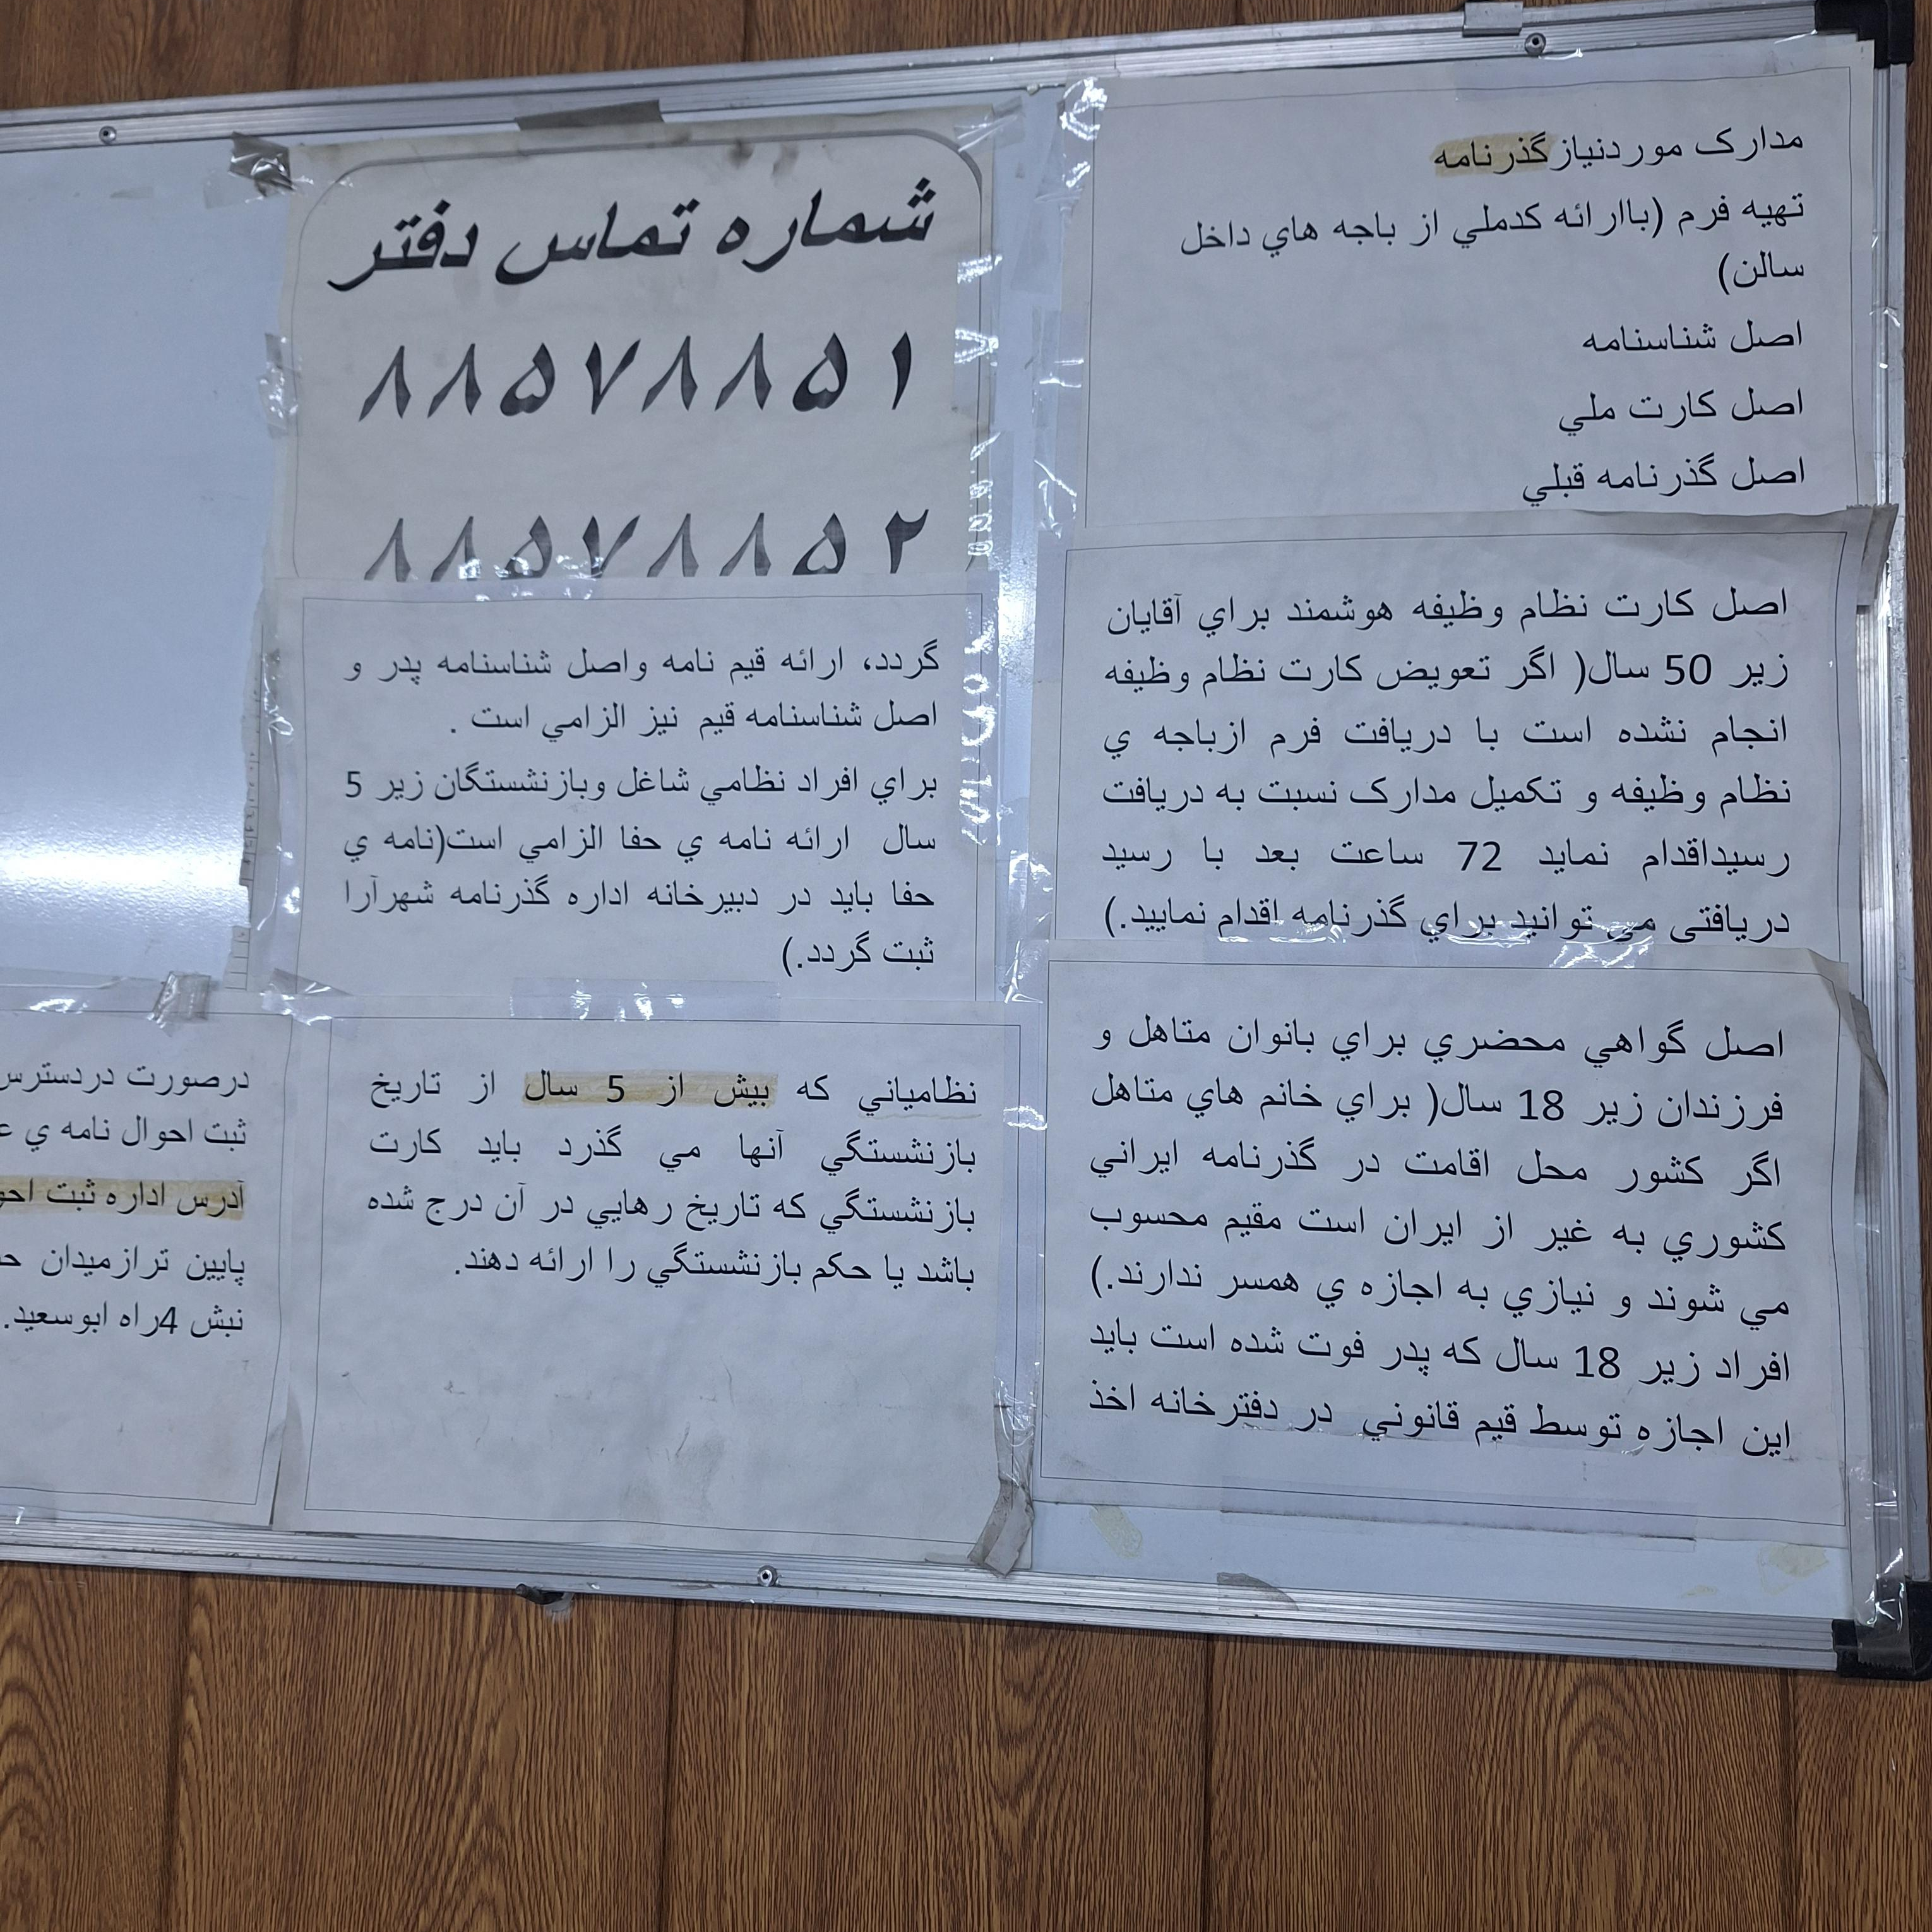 مدارک موردنیاز گذرنامه
تهیه فرم (باارائه کدملي از باجه هاي داخل
سالن)
اصل شناسنامه
اصل کارت ملي
اصل گذرنامه قبلي
اصل کارت نظام وظیفه هوشمند براي آقایان
زیر 50 سال( اگر تعویض کارت نظام وظیفه
انجام نشده است با دریافت فرم ازباجه ي
نظام وظیفه و تکمیل مدارک نسبت به دریافت
رسیداقدام نماید 72 ساعت بعد با رسید
دریافتی می توانید براي گذرنامه اقدام نمایید.)
اصل گواهي محضري براي بانوان متاهل و
فرزندان زیر 18 سال( براي خانم هاي متاهل
اگر کشور محل اقامت در گذرنامه ایراني
کشوري به غیر از ایران است مقیم محسوب
مي شوند و نیازي به اجازه ي همسر ندارند.)
افراد زیر 18 سال که پدر فوت شده است باید
این اجازه توسط قیم قانوني در دفترخانه اخذ
شماره تماس دفتر
۸۸۵۷۸۸۵۱
۸۸۵۷۸۸۵۲
گردد، ارائه قیم نامه واصل شناسنامه پدر و
اصل شناسنامه قیم نیز الزامي است .
براي افراد نظامي شاغل وبازنشستگان زیر 5
سال ارائه نامه ي حفا الزامي است(نامه ي
حفا باید در دبیرخانه اداره گذرنامه شهرآرا
ثبت گردد.)
نظامیاني که بیش از 5 سال از تاریخ
بازنشستگي آنها مي گذرد باید کارت
بازنشستگي که تاریخ رهایي در آن درج شده
باشد یا حکم بازنشستگي را ارائه دهند.
درصورت دردسترس
ثبت احوال نامه ي
آدرس اداره ثبت
پایین ترازمیدان
نبش 4راه ابوسعید.